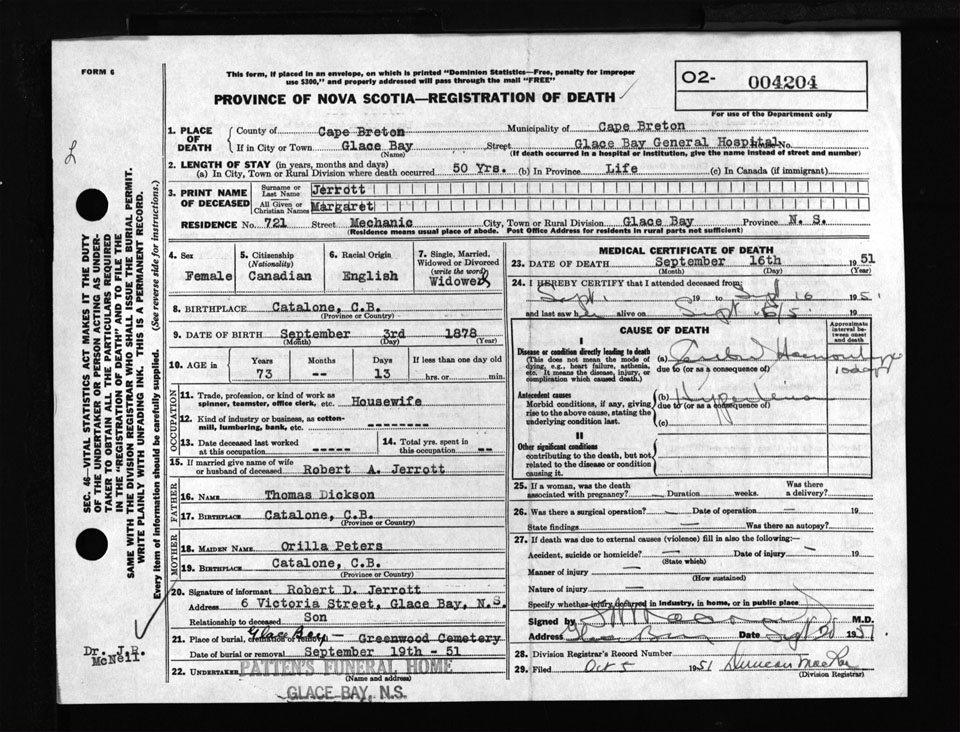 FORM 6
This form, if placed in an envelope, on which is printed "Dominion Statistics—Free, penalty for improper
use $300," and properly addressed will pass through the mail "FREE"
PROVINCE OF NOVA SCOTIA—REGISTRATION OF DEATH
O2- 004204
For use of the Department only
1. PLACE OF DEATH
County of Cape Breton Municipality of Cape Breton
If in City or Town Glace Bay Street Glace Bay General Hospital No.
(Name) (If death occurred in a hospital or institution, give the name instead of street and number)
2. LENGTH OF STAY (in years, months and days)
(a) In City, Town or Rural Division where death occurred 50 Yrs. (b) In Province Life (c) In Canada (if immigrant)
3. PRINT NAME OF DECEASED
Surname or Last Name Jerrott
All Given or Christian Names Margaret
RESIDENCE No. 721 Street Mechanic City, Town or Rural Division Glace Bay Province N. S.
(Residence means usual place of abode. Post Office Address for residents in rural parts not sufficient)
4. Sex
Female
5. Citizenship (Nationality)
Canadian
6. Racial Origin
English
7. Single, Married, Widowed or Divorced (write the word)
Widowed
8. BIRTHPLACE Catalone, C.B.
(Province or Country)
9. DATE OF BIRTH September 3rd 1878
(Month) (Day) (Year)
10. AGE in Years Months Days If less than one day old
73 -- 13 hrs. or min.
OCCUPATION
11. Trade, profession, or kind of work as
spinner, teamster, office clerk, etc. Housewife
12. Kind of industry or business, as cotton-
mill, lumbering, bank, etc. --------
13. Date deceased last worked
at this occupation -----
14. Total yrs. spent in
this occupation --
15. If married give name of wife
or husband of deceased Robert A. Jerrott
FATHER
16. NAME Thomas Dickson
17. BIRTHPLACE Catalone, C.B.
(Province or Country)
MOTHER
18. MAIDEN NAME Orilla Peters
19. BIRTHPLACE Catalone, C.B.
(Province or Country)
20. Signature of informant Robert D. Jerrott
Address 6 Victoria Street, Glace Bay, N.S.
Relationship to deceased Son
21. Place of burial, cremation or removal Glace Bay — Greenwood Cemetery
Date of burial or removal September 19th - 51
22. UNDERTAKER PATTEN'S FUNERAL HOME
(Name and address)
GLACE BAY, N.S.
MEDICAL CERTIFICATE OF DEATH
23. DATE OF DEATH September 16th 1951
(Month) (Day) (Year)
24. I HEREBY CERTIFY that I attended deceased from:
Sept. 19 to Sept 16 1951
and last saw her alive on Sept
CAUSE OF DEATH
Approximate interval between onset and death
I
Disease or condition directly leading to death
(This does not mean the mode of
dying, e.g., heart failure, asthenia,
etc. It means the disease, injury, or
complication which caused death.)
(a) Cerebral Hemorrhage
10 days
due to (or as a consequence of)
Antecedent causes
Morbid conditions, if any, giving
rise to the above cause, stating the
underlying condition last.
(b) Hypertension
due to (or as a consequence of)
(c)
II
Other significant conditions
contributing to the death, but not
related to the disease or condition
causing it.
25. If a woman, was the death
associated with pregnancy? — Duration weeks. Was there a delivery?
26. Was there a surgical operation? — Date of operation — 19
State findings — Was there an autopsy?
27. If death was due to external causes (violence) fill in also the following:—
Accident, suicide or homicide? — Date of injury — 19
(State which)
Manner of injury —
(How sustained)
Nature of injury —
Specify whether injury occurred in industry, in home, or in public place
Signed by M.D.
Address Glace Bay Date Sept 20 1951
28. Division Registrar's Record Number
29. Filed Oct 5 1951 Duncan
(Division Registrar)
SEC. 46—VITAL STATISTICS ACT MAKES IT THE DUTY
OF THE UNDERTAKER OR PERSON ACTING AS UNDER-
TAKER TO OBTAIN ALL THE PARTICULARS REQUIRED
IN THE "REGISTRATION OF DEATH" AND TO FILE THE
SAME WITH THE DIVISION REGISTRAR WHO SHALL ISSUE THE BURIAL PERMIT.
WRITE PLAINLY WITH UNFADING INK. THIS IS A PERMANENT RECORD.
Every item of information should be carefully supplied. (See reverse side for instructions.)
Dr. J.R.
McNeil